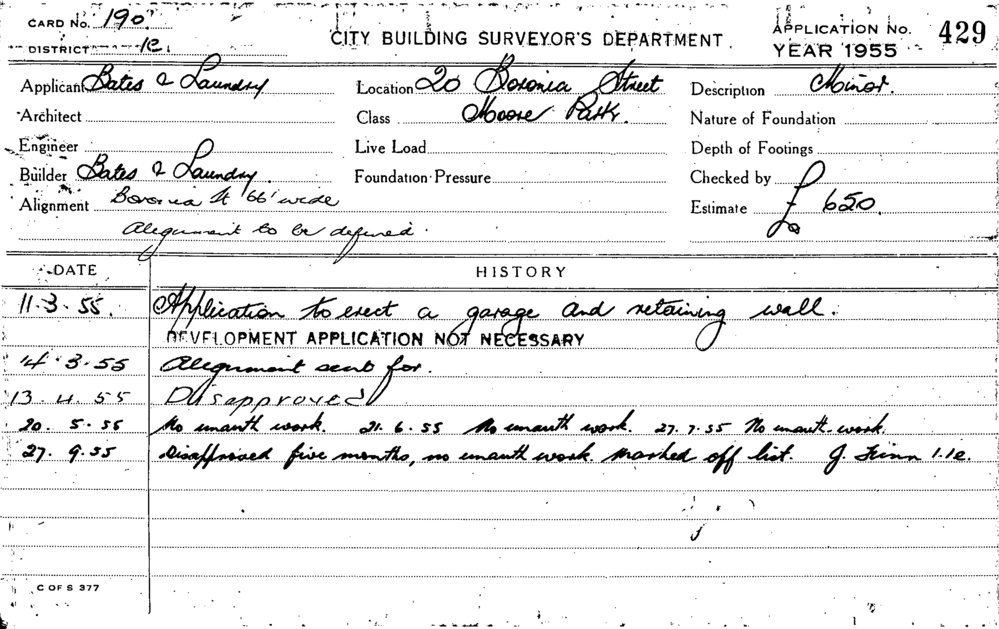 CARD No. 190
DISTRICT 1c.
CITY BUILDING SURVEYOR'S DEPARTMENT.
APPLICATION No. 429
YEAR 1955
Applicant Bates & Laundry
Location 20 Boronia Street
Description Minor.
Architect
Class Moore Park.
Nature of Foundation
Engineer
Live Load
Depth of Footings
Builder Bates & Laundry
Foundation Pressure
Checked by
Alignment Boronia St 66' wide
Estimate £ 650.
Alignment to be defined.
DATE HISTORY
11.3.55. Application to erect a garage and retaining wall.
DEVELOPMENT APPLICATION NOT NECESSARY
14.3.55 Alignment sent for.
13.4.55 Disapproved
20.5.55 No unauth work. 21.6.55 No unauth work. 27.7.55 No unauth work.
27.9.55 Disapproved five months, no unauth work. Marked off list. J. Finn 1.1c.
C OF S 377